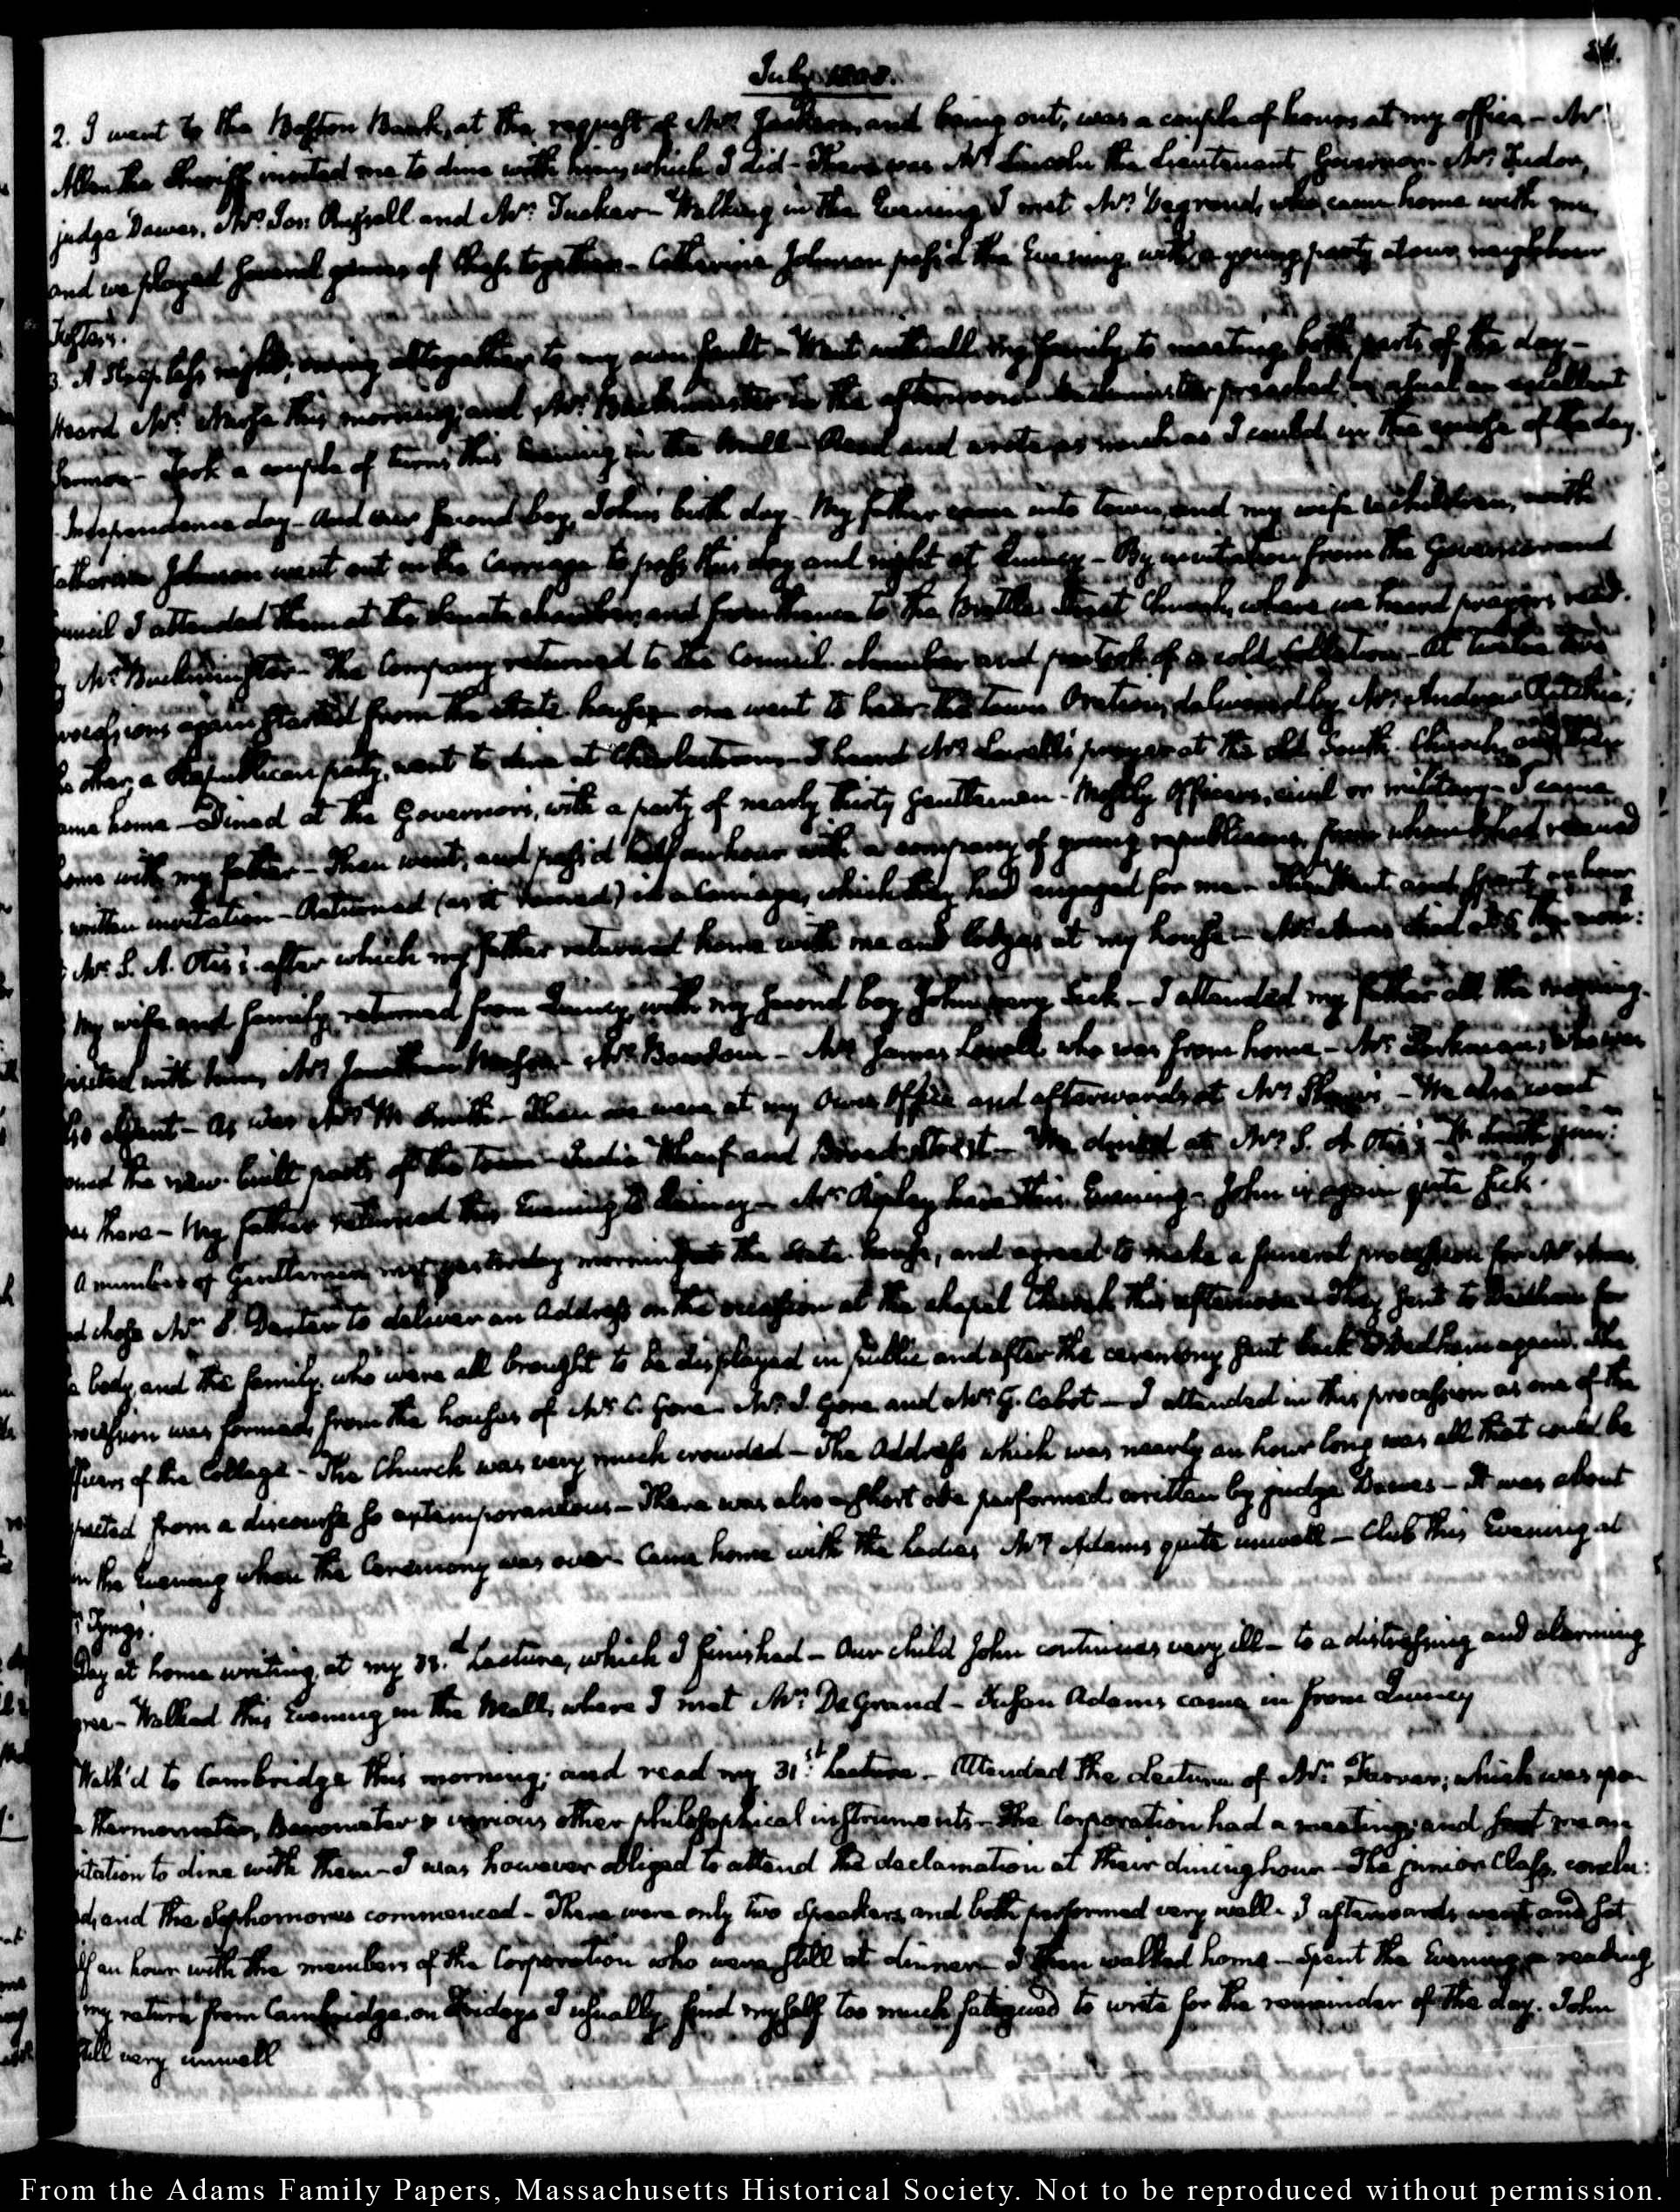 July 1808.
2. I went to the Boston Bank, at the request of Mr. Jackson, and being out, was a couple of hours at my office — Mr.
Allen the Sheriff invited me to dine with him, which I did — There was Mr. Lincoln the Lieutenant Governor — Mr. Tudor,
judge Dawes, Mr. Jos: Russell and Mr. Tucker — Walking in the Evening I met Mr. Degrand, who came home with me,
and we played several games of Chess together — Catherine Johnson pass'd the Evening with a young party at our neighbour
3. A Sleepless night; owing altogether to my own fault — Went with all my family to meeting both parts of the day —
Heard Mr. this morning, and Mr. Buckminster in the afternoon. Buckminster preached as usual an excellent
Sermon — Took a couple of turns this Evening in the Mall — Read and wrote as much as I could in the course of the day.
Independence day — And our second boy, John's birth day — My father came into town, and my wife & children, with
Catherine Johnson went out in the Carriage to pass this day and night at Quincy — By invitation from the Governor and
Council I attended them at the Senate chamber, and from thence to the Brattle Street Church, where we heard prayers read
by Mr. Buckminster — The Company returned to the Council chamber and partook of a cold Collation — At twelve two
processions again started from the State house — one went to hear the town Oration, delivered by Mr. Andrew Ritchie;
the other, a Republican party, went to dine at Charlestown — I heard Mr. Lowell's prayer at the old South Church, and then
came home — Dined at the Governor's, with a party of nearly thirty Gentlemen — Mostly Officers, civil or military — I came
home with my father — Then went, and pass'd half an hour with a company of young republicans, from whom I had received
written invitation — Returned (as it rained) in a Carriage, which they had engaged for me — Then went and spent an hour
Mr. S. A. Otis's after which my father returned home with me and lodges at my house —
My wife and family returned from Quincy, with my second boy John very sick — I attended my father all the morning.
visited with him, Mr. Jonathan Mason — Mr. Bowdoin — Mr. James Lovell who was from home — Mr. Parkman, who was
also absent — As was Mr. W. Smith — Then we were at my Own Office and afterwards at Mr. Shaw's — We also went
round the new built parts of the town — India Wharf and Broad Street — We dined at Mr. S. A. Otis's —
was there — My father returned this Evening to Quincy — Mr. Ripley here this Evening — John is again quite sick.
A number of Gentlemen met yesterday morning at the State house, and agreed to make a funeral procession for Mr. Ames
and chose Mr. S. Dexter to deliver an Address on the occasion at the chapel Church this afternoon — They sent to Dedham for
the body, and the family, who were all brought to be displayed in public and after the ceremony sent back to Dedham again. The
procession was formed, from the houses of Mr. C. Gore — Mr. J. Gore and Mr. G. Cabot — I attended in this procession as one of the
officers of the College — The Church was very much crowded — The Address which was nearly an hour long was all that could be
expected from a discourse so extemporaneous — There was also a short ode performed, written by judge Dawes — It was about
in the Evening when the Ceremony was over — Came home with the ladies Mrs. Adams quite unwell — Club this Evening at
Tyng's.
Day at home writing, at my 33.d Lecture, which I finished — Our child John continues very ill — to a distressing and alarming
degree — Walked this Evening in the Mall, where I met Mr. DeGrand — Susan Adams came in from Quincy
Walk'd to Cambridge this morning; and read my 31.st Lecture — Attended the Lecture of Mr. Farrar; which was upon
Thermometer, Barometer & various other philosophical instruments — The Corporation had a meeting; and sent me an
invitation to dine with them — I was however obliged to attend the declamation at their dining hour — The junior Class, conclu:
ded, and the Sophomores commenced — There were only two Speakers, and both performed very well — I afterwards went and sat
half an hour with the members of the Corporation who were still at dinner — I then walked home — Spent the Evening in reading
my return from Cambridge, on Fridays I usually find myself too much fatigued to write for the remainder of the day. John
still very unwell
From the Adams Family Papers, Massachusetts Historical Society. Not to be reproduced without permission.